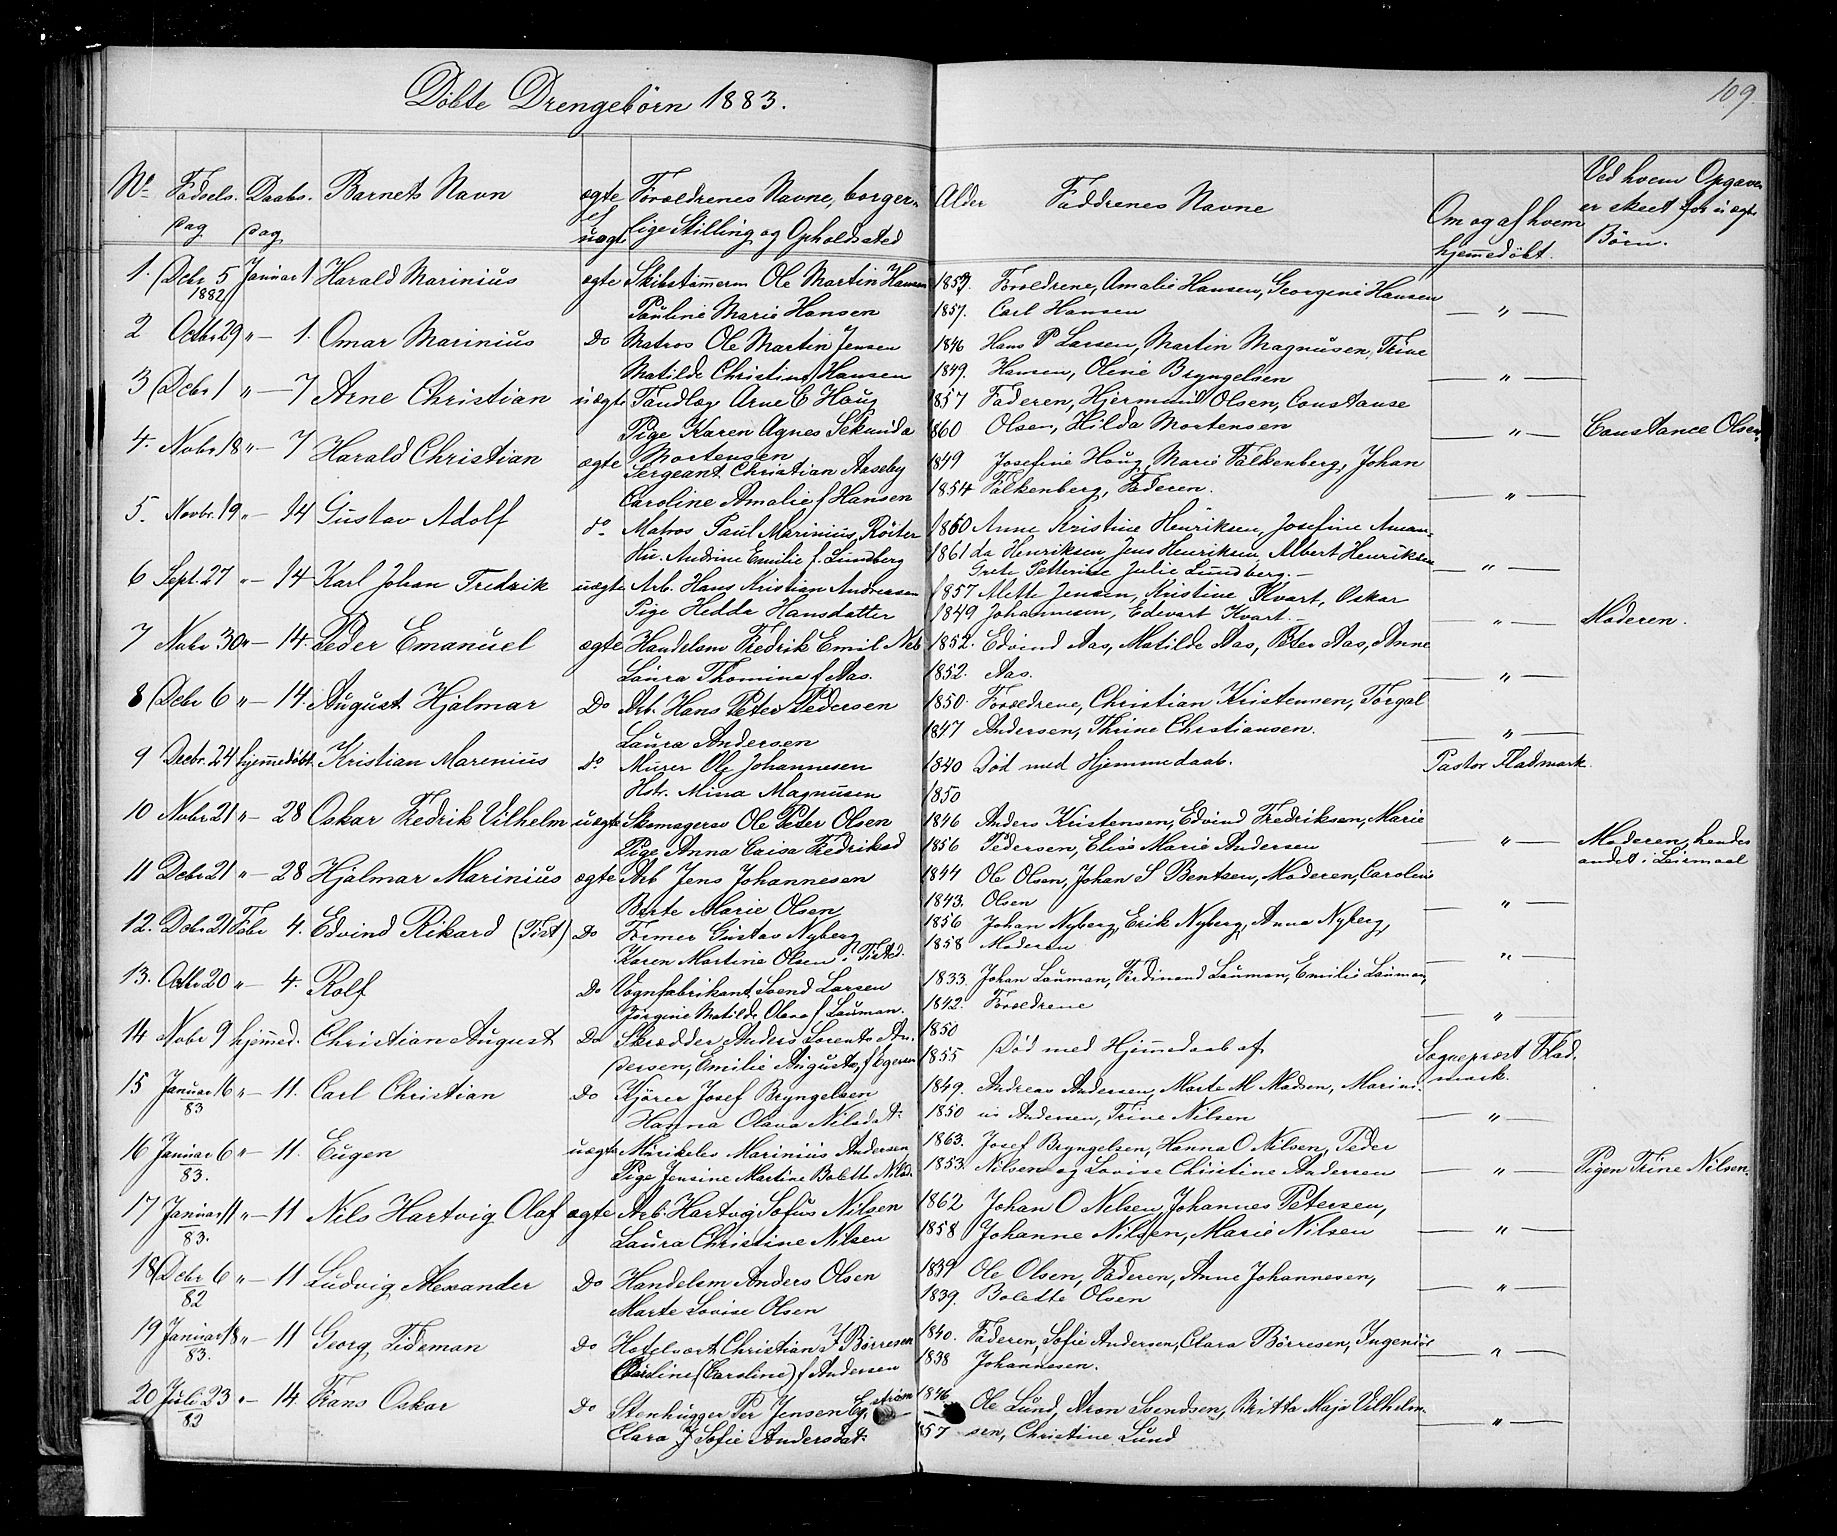 Döbte Drengebörn 1883.
109.
No Födsels dag Daabs dag Barnets Navn ægte el uægt Forældrenes Navne, borgerlige Stilling og Opholdsted Alder Faddrenes Navne Om og af hvem hjemmedöbt. Ved hvem Opgaven er skeet for uægte Börn.
1. Dcbr 5 1882 Januar 1 Harald Marinius ægte Skibstömmerm Ole Martin Hansen 1859 Forældrene, Amalie Hansen, Georgine Hansen
Pauline Marie Hansen 1857. Carl Hansen — " —
2 Octbr 29 " — 1. Omar Marinius Do Matros Ole Martin Jensen 1846 Hans P Larsen, Martin Magnusen, Trine
Matilde Christine Hansen 1849. Hansen, Oline Bryngelsen — " —
3 Dcbr 1 " — 7 Arne Christian uægte Tandlæg Arne C Houg 1857 Faderen, Hjermund Olsen, Constanse
Pige Karen Agnes Sekunda Mortensen 1860 Olsen, Hilda Mortensen — " — Constance Olsen
4. Nobr 18 " — 7 Harald Christian ægte Sergeant Christian Aaseby 1849 Josefine Houg, Marie Falkenberg, Johan
Caroline Amalie f Hansen 1854 Falkenberg, Faderen. — " —
5. Novbr. 19 " — 14 Gustav Adolf do Matros Paul Marinius Röiter 1860 Anne Kristine Henriksen, Josefine Aman-
Hu. Andrine Emilie f. Lundberg 1861 da Henriksen, Jens Henriksen Albert Henriksen
Grete Petterine Julie Lundberg. — — " —
6 Sept. 27 " — 14 Karl Johan Fredrik uægte Arb. Hans Kristian Andreasen 1857 Mette Jensen, Kristine Kvart, Oskar
Pige Hedda Hansdatter 1849 Johannesen, Edevart Kvart. — — " — Moderen.
7 Nobr 30 " — 14. Peder Emanuel ægte Handelsm Fredrik Emil 1852. Edvind Aas, Matilde Aas, Peter Aas, Anne
Laura Thomine f Aas. 1852. Aas. — " —
8 Dcbr 6 " — 14. August Hjalmar Do Arb. Hans Peter Pedersen 1850. Forældrene, Christian Kristensen, Torgal
Laura Andersen 1847 Andersen, Thrine Christiansen. — " —
9 Decbr. 24 hjemmedöbt Kristian Marenius do Murer Ole Johannesen 1840 Död med Hjemmedaab. Pastor Fladmark.
Hstr. Mina Magnusen 1850
10 Nobr 21 " — 28 Oskar Fredrik Vilhelm uægte Skomagersv Ole Peter Olsen 1846 Anders Kristensen, Edvind Fredriksen, Marie
Pige Anna Caisa Fredriksd 1856 Pedersen, Elise Marie Andersen — " — Moderen, hendes
andet i Leiermaal
11 Dcbr 21 " — 28 Hjalmar Marinius ægte Arb Jens Johannesen 1844 Ole Olsen, Johan S Bentsen, Moderen, Caroline
Berte Marie Olsen 1843. Olsen — " —
12. Dcbr 21 Febr 4. Edvind Rikard (Tist) Do Gustav Nyberg 1856 Johan Nyberg, Erik Nyberg, Anna Nyberg,
Karen Martine Olsen i Tisted. 1858 Moderen — " —
13. Octbr 20 " — 4. Rolf Do Vognfabrikant Svend Larsen 1833. Johan Lauman, Ferdinand Lauman, Emilie Lauman,
Jörgine Matilde Olava f Lauman. 1842. Forældrene — " —
14 Nobr 9 hjemmed. Christian August Do Skrædder Anders Lorents An- 1850
dersen, Emilie Augusta, f Egeren 1855 Död med Hjemmedaab af Sogneprest Flad-
mark.
15 Januar 16 83 " — 11. Carl Christian Do Kjörer Josef Bryngelsen 1849. Andreas Andersen, Marte M. Madsen, Marini-
Hanna Olava Nilsdat: 1850 us Andersen, Trine Nilsen — " —
16 Januar 6 83. " — 11. Eugen uægte Marinius Andersen 1863. Josef Bryngelsen, Hanna O Nilsen, Peder
Pige Jensine Martine Bolette Nilsd. 1853. Nilsen og Lovise Christine Andersen — " — Pigen Trine Nilsen.
17 Januar 11 83. " — 11 Nils Hartvig Olaf ægte Arb. Hartvig Sofus Nilsen 1862 Johan O Nilsen, Johannes Petersen,
Laura Christine Nilsen 1858 Johanne Nilsen, Marie Nilsen — " —
18 Dcbr 6 82 " — 11 Ludvig Alexander Do Handelsm Anders Olsen 1839 Ole Olsen, Faderen, Anne Johannesen,
Marte Lovise Olsen 1839. Boledte Olsen — " —
19 Januar 18 83. " — 11 Georg Tideman Do Hotelvært Christian J Börresen 1840. Faderen, Sofie Andersen, Clara Börresen, Ingeniör
(Caroline) f Andersen 1838 Johannesen. — " —
20 Juli 23 82 " — 14. Frans Oskar Do Stenhugger Per Jensen 1846 Ole Lund, Aron Svendsen, Britta Maja Vilhelm-
Clara J Sofie Andersdat: 1857 sen, Christine Lund — " —